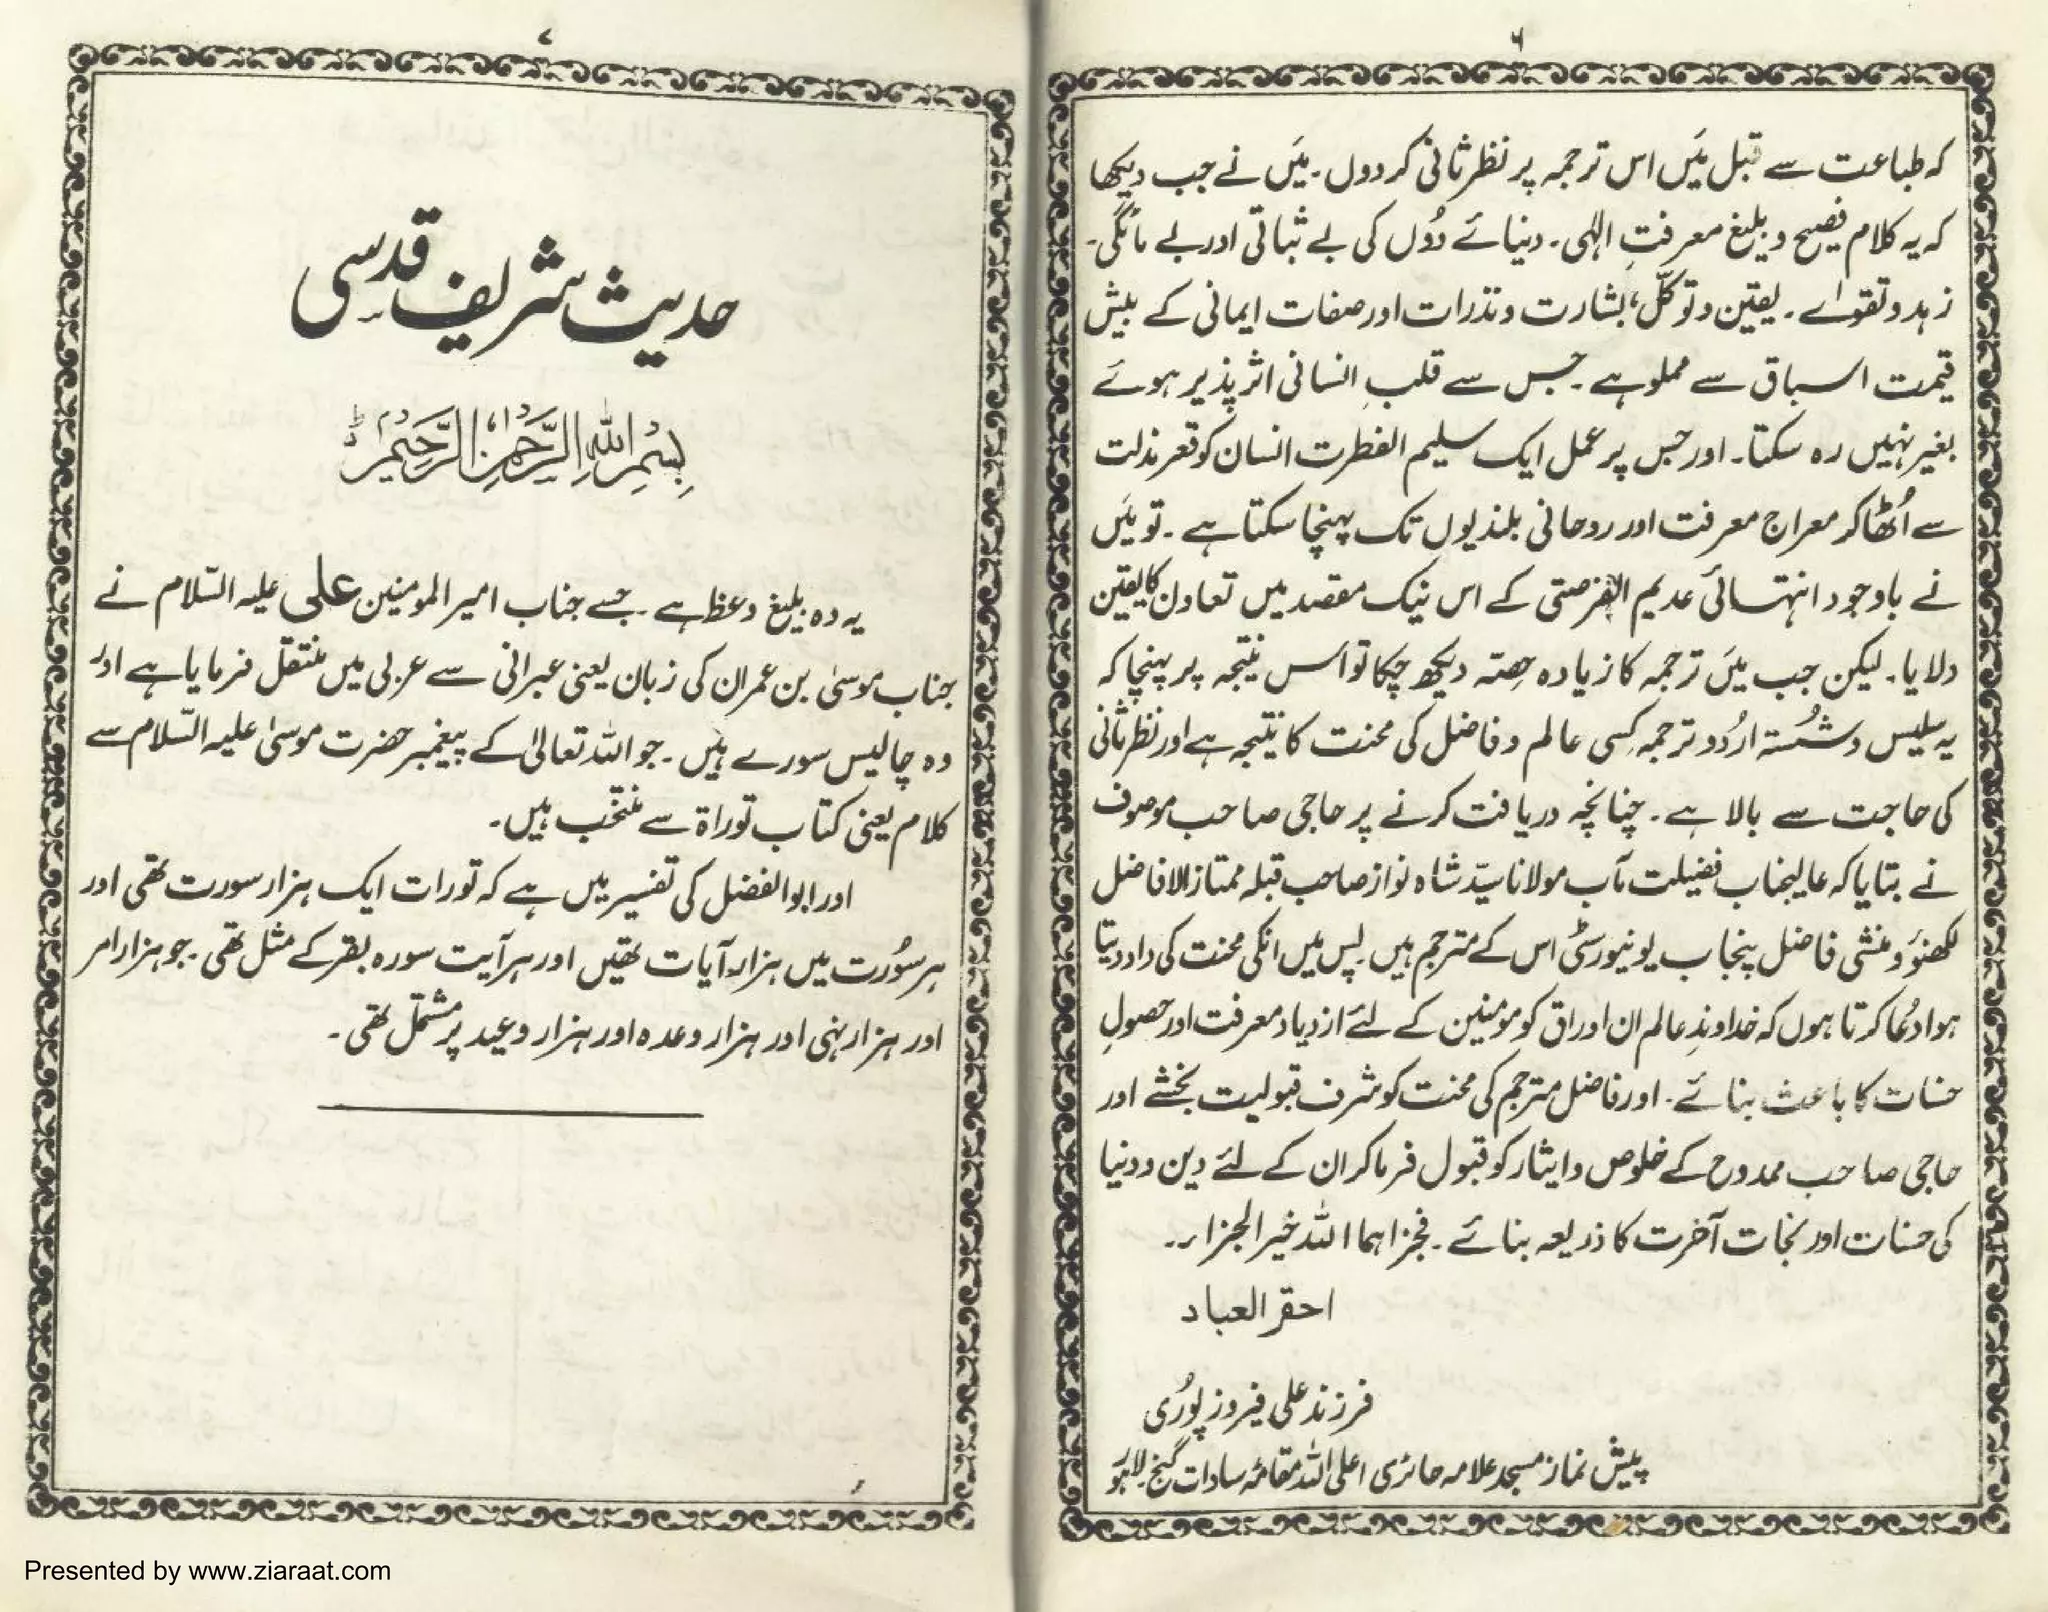 ۶
کہ طباعت سے قبل میَں اس ترجمہ پر نظر ثانی کر دوں۔ میَں نے جب دیکھا
کہ یہ کلام فصیح و بلیغ معرفتِ الٰہی۔ دنیائے دُوں کی بے ثباتی اور بے مائگی۔
زہد و تقوٰے۔ یقین و توکّل، بشارت و نذرات اور صفات ایمانی کے بیش
قیمت اسباق سے مملو ہے۔ جس سے قلبِ انسانی اثر پذیر ہوئے
بغیر نہیں رہ سکتا۔ اور جس پر عمل ایک سلیم الفطرت انسان کو قعر مذلت
سے اُٹھا کر معراج معرفت اور روحانی بلندیوں تک پہنچا سکتا ہے۔ تو میَں
نے باوجود انتہائی عدیم الفرصتی کے اس نیک مقصد میں تعاون کا یقین
دلایا۔ لیکن جب میَں ترجمہ کا زیادہ حِصّہ دیکھ چکا تو اس نتیجہ پر پہنچا کہ
یہ سلیس و شُستہ اُردُو ترجمہ کِسی عالم و فاضل کی محنت کا نتیجہ ہے اور نظرثانی
کی حاجت سے بالا ہے۔ چنانچہ دریافت کرنے پر حاجی صاحب موصوف
نے بتایا کہ عالیجناب فضیلت مآب مولانا سیّد شاہ نواز صاحب قبلہ ممتاز الافاضل
لکھنؤ و منشی فاضل پنجاب یونیورسٹی اس کے مترجم ہیں۔ پس میں انکی محنت کی داد دیتا
ہوا دُعا کرتا ہوں کہ خداوندِ عالم ان اوراق کو مومنین کے لئے ازدیاد معرفت اور حصولِ
حسنات کا باعث بنائے۔ اور فاضل مترجم کی محنت کو شرف قبولیت بخشے اور
حاجی صاحب ممدوح کے خلوص و ایثار کو قبول فرما کر ان کے لئے دین و دنیا
کی حسنات اور نجات آخرت کا ذریعہ بنائے۔ فجزاہما اللہ خیر الجزاء۔
احقر العباد
فرزند علی فیروز پُوری
پیش نماز مسجد علامہ حائری اعلی اللہ مقامہ سادات گنج۔ لاہور
۷
حدیث شریف قدسی
بِسْمِ اللّٰهِ الرَّحْمٰنِ الرَّحِیْمِ ط
یہ وہ بلیغ وعظ ہے۔ جسے جناب امیر المومنین علی علیہ السّلام نے
جناب موسیٰ بن عمران کی زبان یعنی عبرانی سے عربی میں منتقل فرمایا ہے اور
وہ چالیس سورے ہیں۔ جو اللہ تعالیٰ کے پیغمبر حضرت موسیٰ علیہ السّلام سے
کلام یعنی کتاب توراۃ سے منتخب ہیں۔
اور ابوالفضل کی تفسیر میں ہے کہ تورات ایک ہزار سورت تھی اور
ہر سُورت میں ہزار آیات تھیں اور ہر آیت سورہ بقر کے مثل تھی۔ جو ہزار امر
اور ہزار نہی اور ہزار وعدہ اور ہزار وعید پر مشتمل تھی۔
Presented by www.ziaraat.com